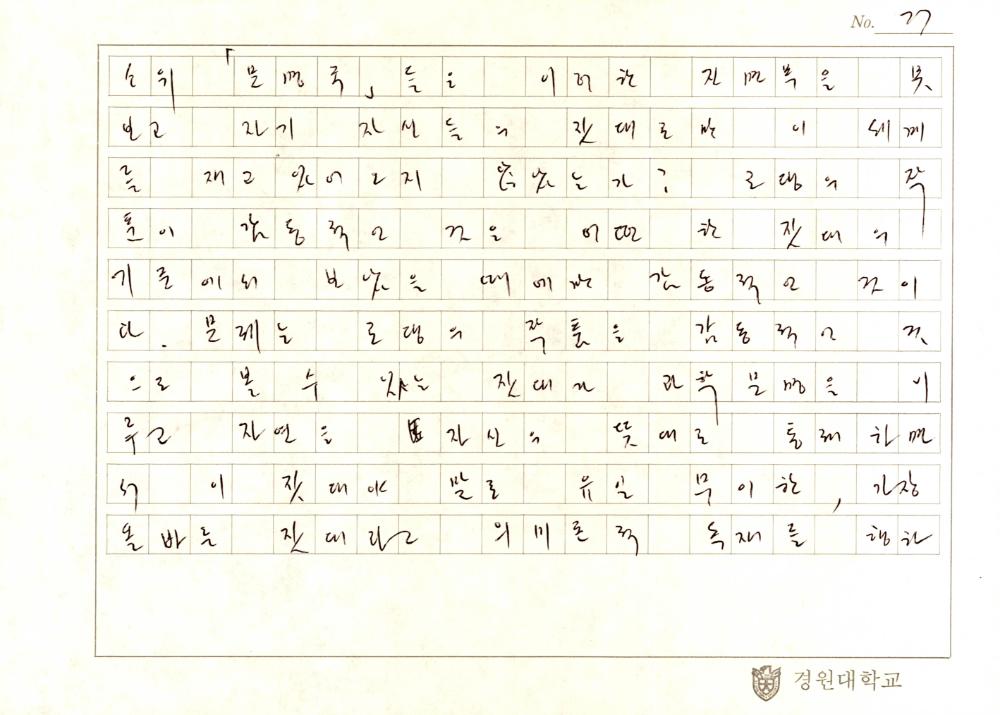 No. 77
소위 「문명국」들은 이러한 진면목을 못
보고 자기 자신들의 잣대로만 이 세계
를 재고 있어 오지 않았는가? 로댕의 작
품이 감동적인 것은 어떤 한 잣대의
기준에서 보았을 때에만 감동적인 것이
다. 문제는 로댕의 작품을 감동적인 것
으로 볼 수 있는 잣대가 과학문명을 이
루고 자연을 자신의 뜻대로 통제하면
서 이 잣대야말로 유일무이한, 가장
올바른 잣대라고 의미론적 독재를 행하
경원대학교